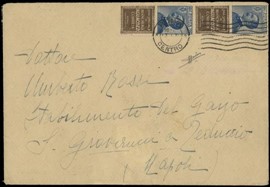 CENTRO
Dottor
Umberto Rossi
Stabilimento del
S. Giovanni a Teduccio
(Napoli)